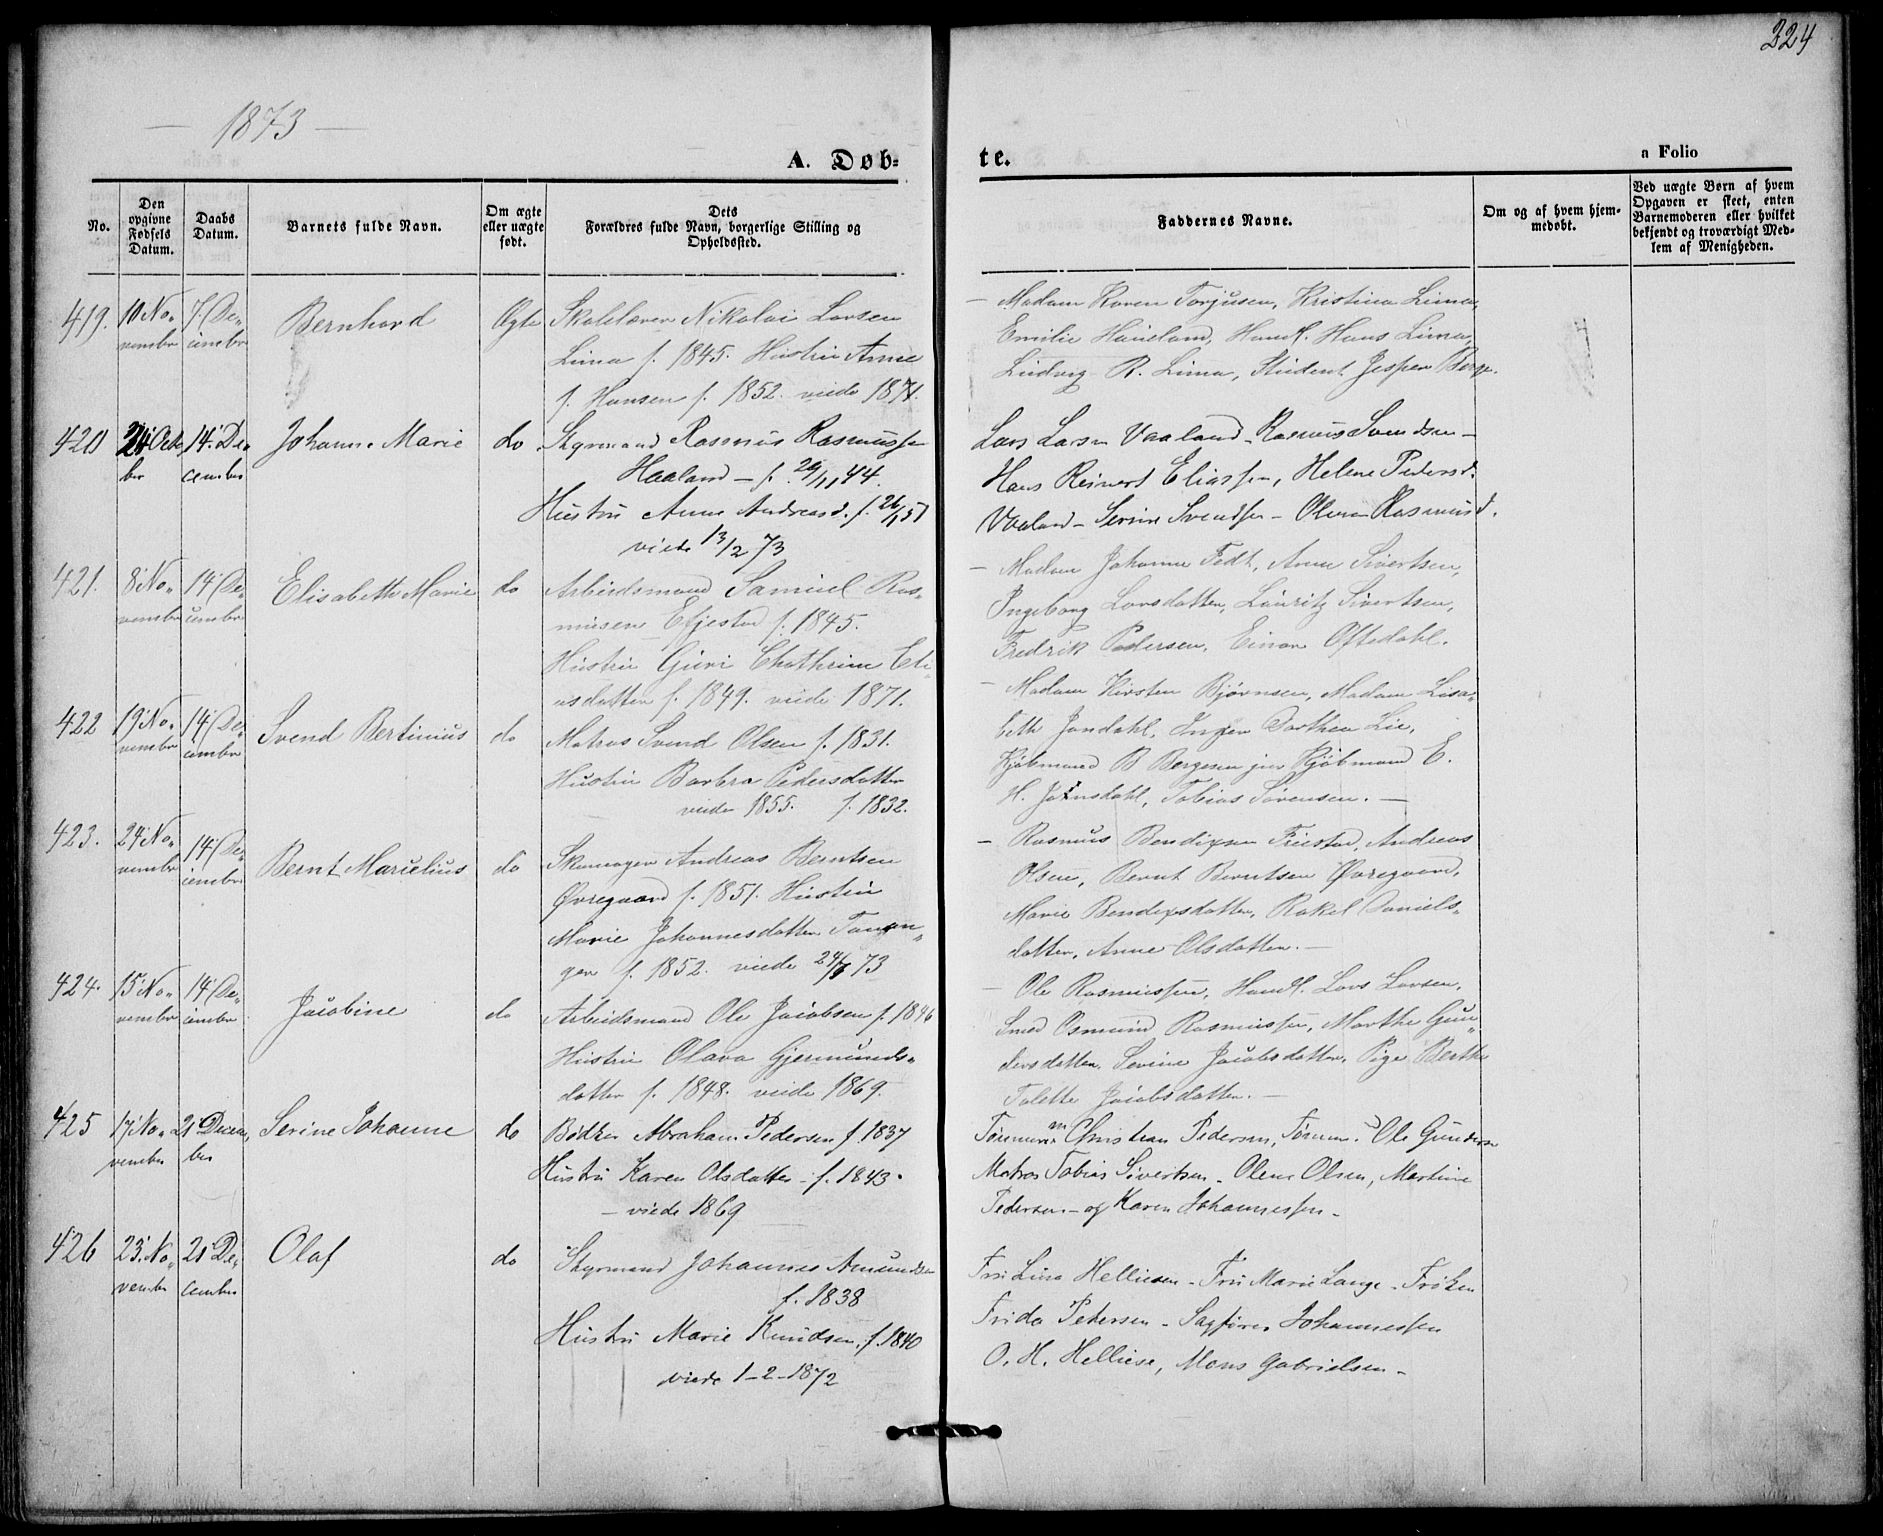 224
— 1873 —
A. Døb-
te.
a Folio
No.
Den opgivne Fødsels Datum.
Daabs Datum.
Barnets fulde Navn.
Om ægte eller uægte født.
Dets
Forældres fulde Navn, borgerlige Stilling og Opholdssted.
Faddernes Navne.
Om og af hvem hjemmedøbt.
Ved uægte Børn af hvem Opgaven er skeet, enten Barnemoderen eller hvilket bekjendt og troværdigt Medlem af Menigheden.
419. 10 No- 7 De- Bernhard Ægte Skolelærer Nikolai Larsen
vember cember Lima f. 1845. Hustru Anne
f. Hansen f. 1852. viede 1871.
— Madam Karen Torjusen, Kristina Lima,
Emilie Haueland, Handl. Hans Lima,
Ludvig R. Lima, Student Jesper Berge.
420 24 Octo 14. De- Johanne Marie do Styrmand Rasmus Rasmussen
ber cember Haaland — f. 29/11 44.
Hustru Anne Andreasd. f. 26/1 51
viede 13/2 73
Lars Larsen Vaaland - Rasmus Svendsen —
Hans Reinert Eliassen, Helene Pedersd.
Vaaland - Serine Svendsen - Olena Rasmusd.
421. 8 No- 14 De- Elisabeth Marie do Arbeidsmand Samuel Ras-
vember cember musen Efjestad f. 1845.
Hustru Guri Chathrine El-
asdatter f. 1849. viede 1871.
— Madam Johanna Fedt, Anne Sivertsen,
Ingeborg Larsdatter, Lauritz Sivertsen,
Fredrik Pedersen, Einar Oftedahl.
422 19 No- 14 De- Svend Bertinius do Matros Svend Olsen f. 1831.
vember cember Hustru Barbra Pedersdatter
viede 1855. f. 1832.
— Madam Kirsten Bjørnsen, Madam Lisa-
beth Jondahl, Inger Dorthea Lie,
Kjøbmand B Bergesen jun Kjøbmand E.
H. Jonsdahl, Tobias Sørensen. —
423. 24 No- 14 De- Bernt Marselius do Skomager Andreas Berntsen
vember cember Øvregaard f. 1851. Hustru
Marie Johannesdatter Tanan-
ger f. 1852. viede 24/6 73
— Rasmus Bendixen Friestad, Andreas
Olsen, Bernt Berntsen Øvregaard,
Marie Bendixsdatter, Rakel Daniels-
datter, Anne Olsdatter. —
424. 15 No- 14 De- Jacobine do Arbeidsmand Ole Jacobsen f. 1846
vember cember Hustru Olava Gjermunds-
datter f. 1848. viede 1869.
— Ole Rasmussen, Handl. Lars Larsen,
Smed Osmund Rasmussen, Marthe Gun-
dersdatter, Serine Jacobsdatter, Pige Berthe
Tolette Jacobsdatter. —
425 17 No- 21 Decem- Serine Johanne do Bødker Abraham Pedersen f. 1837
vember ber Hustru Karen Olsdatter - f. 1843.
— viede 1869
Tømmerm Christian Pedersen, Tømm. Ole Gundersen
Matros Tobias Sivertsen - Olene Olsen, Martine
Pedersen - og Karen Johannessen -
426 23 No- 21 De- Olaf do Styrmand Johannes Amundsen
vember cember f. 1838
Hustru Marie Knudsen, f. 1840
viede 1-2-1872
Fru Lina Helliesen - Fru Marie Lange - Frøken
Frida Petersen - Sagfører Johannessen
O. H. Helliese, Mons Gabrielsen -